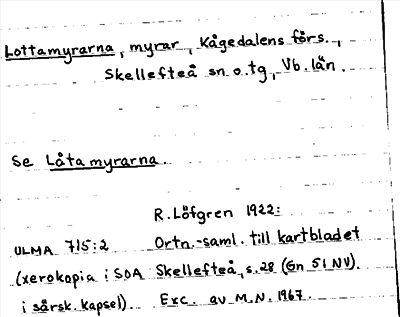 Lottamyrarna, myrar, Kågedalens förs.,
Skellefteå sn o. tg, Vb. län.
Se Låtamyrarna.
R. Löfgren 1922:
ULMA 715:2 Ortn.-saml. till kartbladet
(xerokopia i SOA Skellefteå, s. 28 (Gn 51 NV).
i särsk. kapsel). Exc. av M.N. 1967.